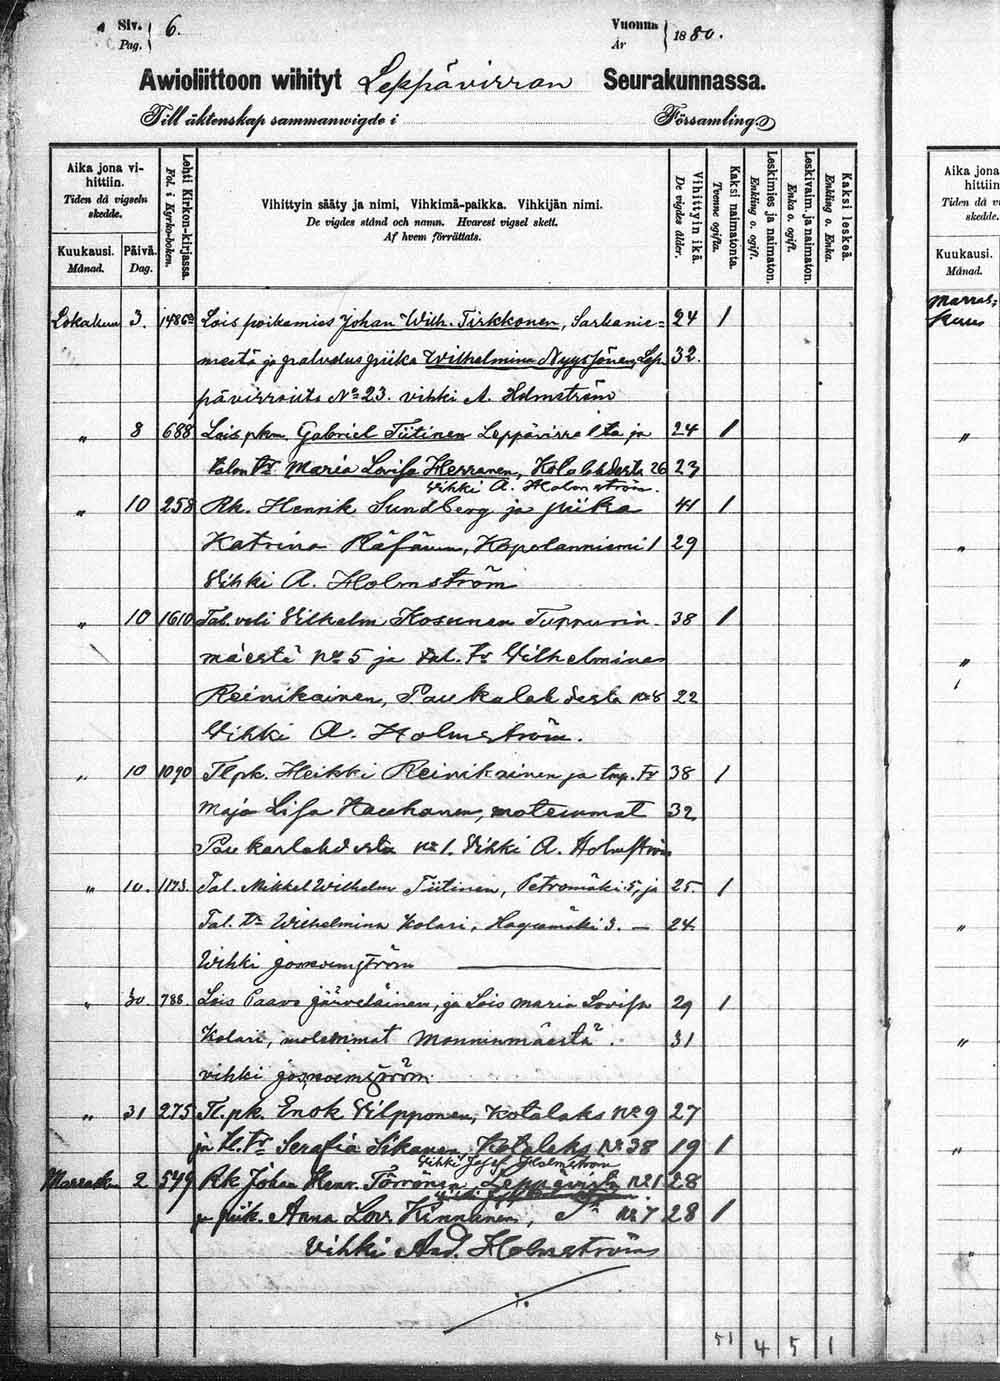 Siv. 6.
Pag.
Vuonna 1880.
År
Awioliittoon wihityt Leppävirran Seurakunnassa.
Till äktenskap sammanwigde i Församling.
Aika jona vihittiin.
Tiden då vigseln skedde.
Kuukausi.
Månad.
Päivä.
Dag.
Lehti Kirkon-kirjassa.
Fol. i Kyrko-boken.
Vihittyin sääty ja nimi, Vihkimä-paikka. Vihkijän nimi.
De vigdes stånd och namn. Hvarest vigsel skett.
Af hvem förrättats.
Vihittyin ikä.
De vigdes ålder.
Kaksi naimatonta.
Tvenne ogifta.
Leskimies ja naimaton.
Enkling o. ogift.
Leskivaim. ja naimaton.
Enka o. ogift.
Kaksi leskeä.
Enkling o. Enka.
Lokakuu 3. 1486 Lois poikamies Johan Wilh. Tirkkonen, Sarkamä= 24 1
mestä ja palvelus piika Wilhelmina Nyyssönen Lep- 32.
pävirroilta No 23. vihki A. Holmström
" 8 688 Lois pkm. Gabriel Tiitinen Leppävirralta ja 24 1
talon tr Maria Lovisa Herranen, Kotalahdesta 26 23
Vihki A. Holmström.
" 10 258 Rk. Henrik Sundberg ja piika 41 1
Katrina Räsänen, Kopolanniemi 1 29
Vihki A. Holmström
" 10 1610 Tal. veli Vilhelm Kosunen Tuppurin- 38 1
mäestä No 5 ja tal. tr Vilhelmina
Reinikainen, Paukalahdesta No 8 22
Vihki A. Holmström.
" 10 1090 Tl pk. Heikki Reinikainen ja tmp. tr 38 1
Maja Lisa Kauhanen, molemmat 32
Paukarlahdesta No 1. Vihki A. Holmström
" 10. 1173. Tal. Mikkel Wilhelm Tiitinen, Petromäki 5, ja 25. 1
Tal. tr Wilhelmina Kolari, 3. — 24.
Wihki
" 30 788. Lois Paavo Järveläinen, ja Lois Maria Lovisa 29 1
Kolari, molemmat Monninmäestä. 31
vihki
" 31 275 Tl. pk. Enok Vilpponen, Kotalaks No 9 27
ja tl. tr Serafia Sikanen, Kotalaks No 38 19 1
Vihki Josef Holmström
Marrask. 2 549 Rk Johan Henr. Törrönen Leppävirta No 1 28
ja piik. Anna Lovr Kinnunen, No 7 28 1
Vihki And. Holmström
51 4 5 1
Aika jona
hittiin
Tiden då vi
skedde.
Kuukausi.
Månad.
Marras-
kuu
"
"
"
"
"
"
"
"